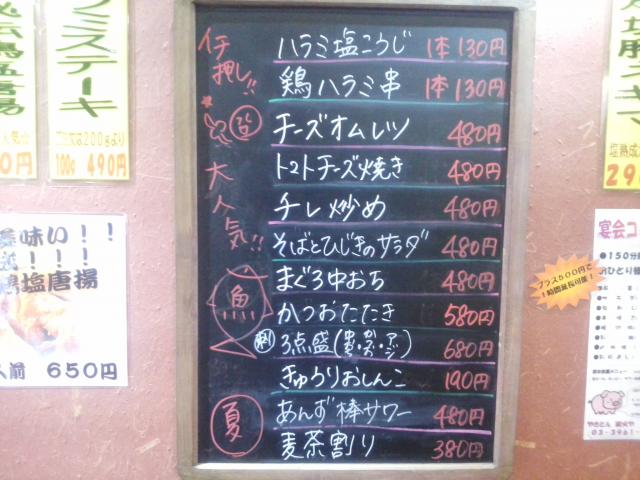 イチ押し!!
ハラミ塩こうじ 1本 130円
鶏ハラミ串 1本 130円
大人気!!
チーズオムレツ 480円
トマトチーズ焼き 480円
チレ炒め 480円
そばとひじきのサラダ 480円
魚
まぐろ中おち 480円
かつおたたき 580円
3点盛 680円
きゅうりおしんこ 190円
夏
あんず棒サワー 480円
麦茶割り 380円
ラミステーキ
ご注文は200gより
100g 490円
味い!!
!!!
塩唐揚
人前 650円
宴会コ
●150分
プラス500円で
1時間延長可能!
03-3961-